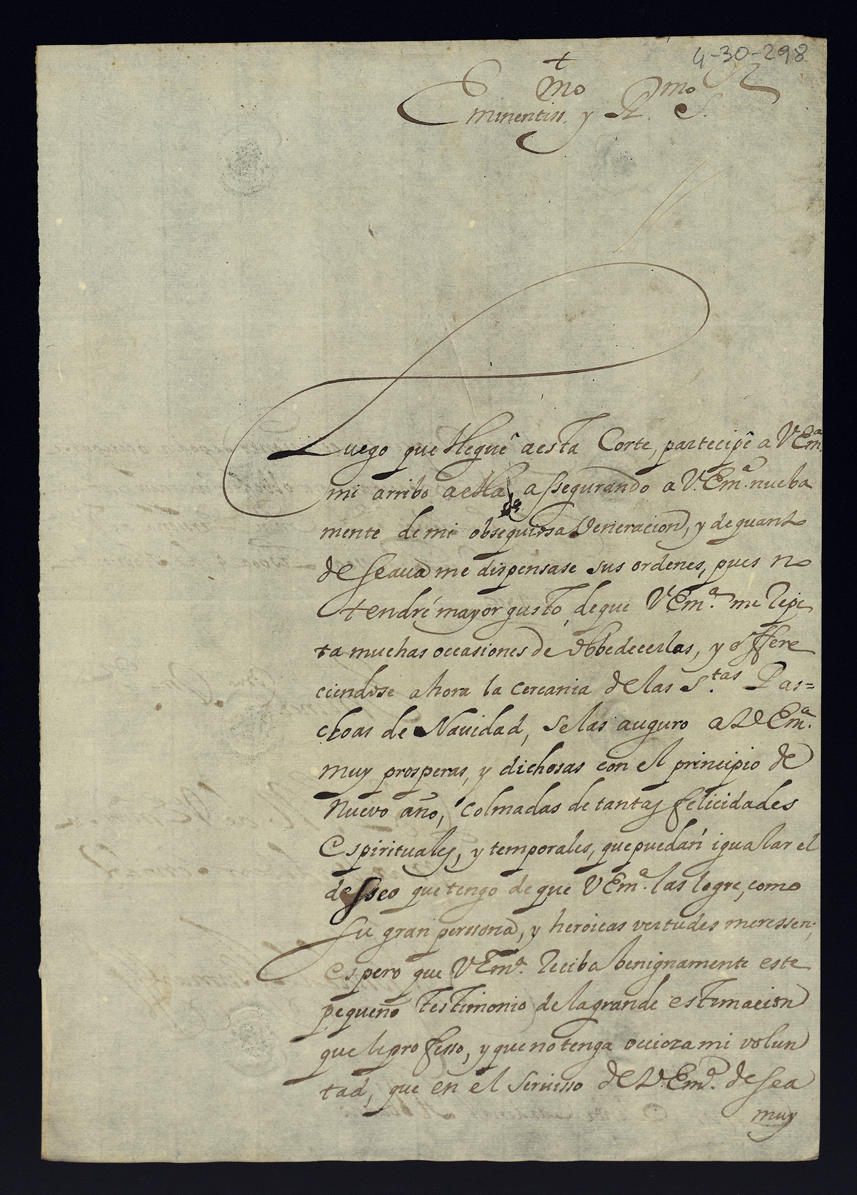 4-30-298
+
Eminentiss.mo y R.mo S.r
Luego que llegué a esta Corte, partecipè a V.Em.a
mi arribo a ella, assegurando a V.Em.a nueba
mente de mi obsequiosa Veneracion, y de quanto
desseaua me dispensase sus ordenes, pues no
tendré mayor gusto, de que V.Em.a me repe
ta muchas occasiones de obbedecerlas, y offere
ciendose ahora la cercania de las S.tas Pas=
choas de Navidad, se las auguro a V.Em.a
muy prosperas, y dichosas con el principio de
Nuevo año, colmadas de tantas felicidades
Espirituales, y temporales, que puedan igualar el
desseo que tengo de que V.Em.a las logre, como
su gran persona, y heroicas vertudes meressen;
espero que V.Em.a reciba benignamente este
pequeño testimonio de la grande estimacion
que le professo, y que no tenga occioza mi volun
tad, que en el servisso de V.Em.a dessea
muy